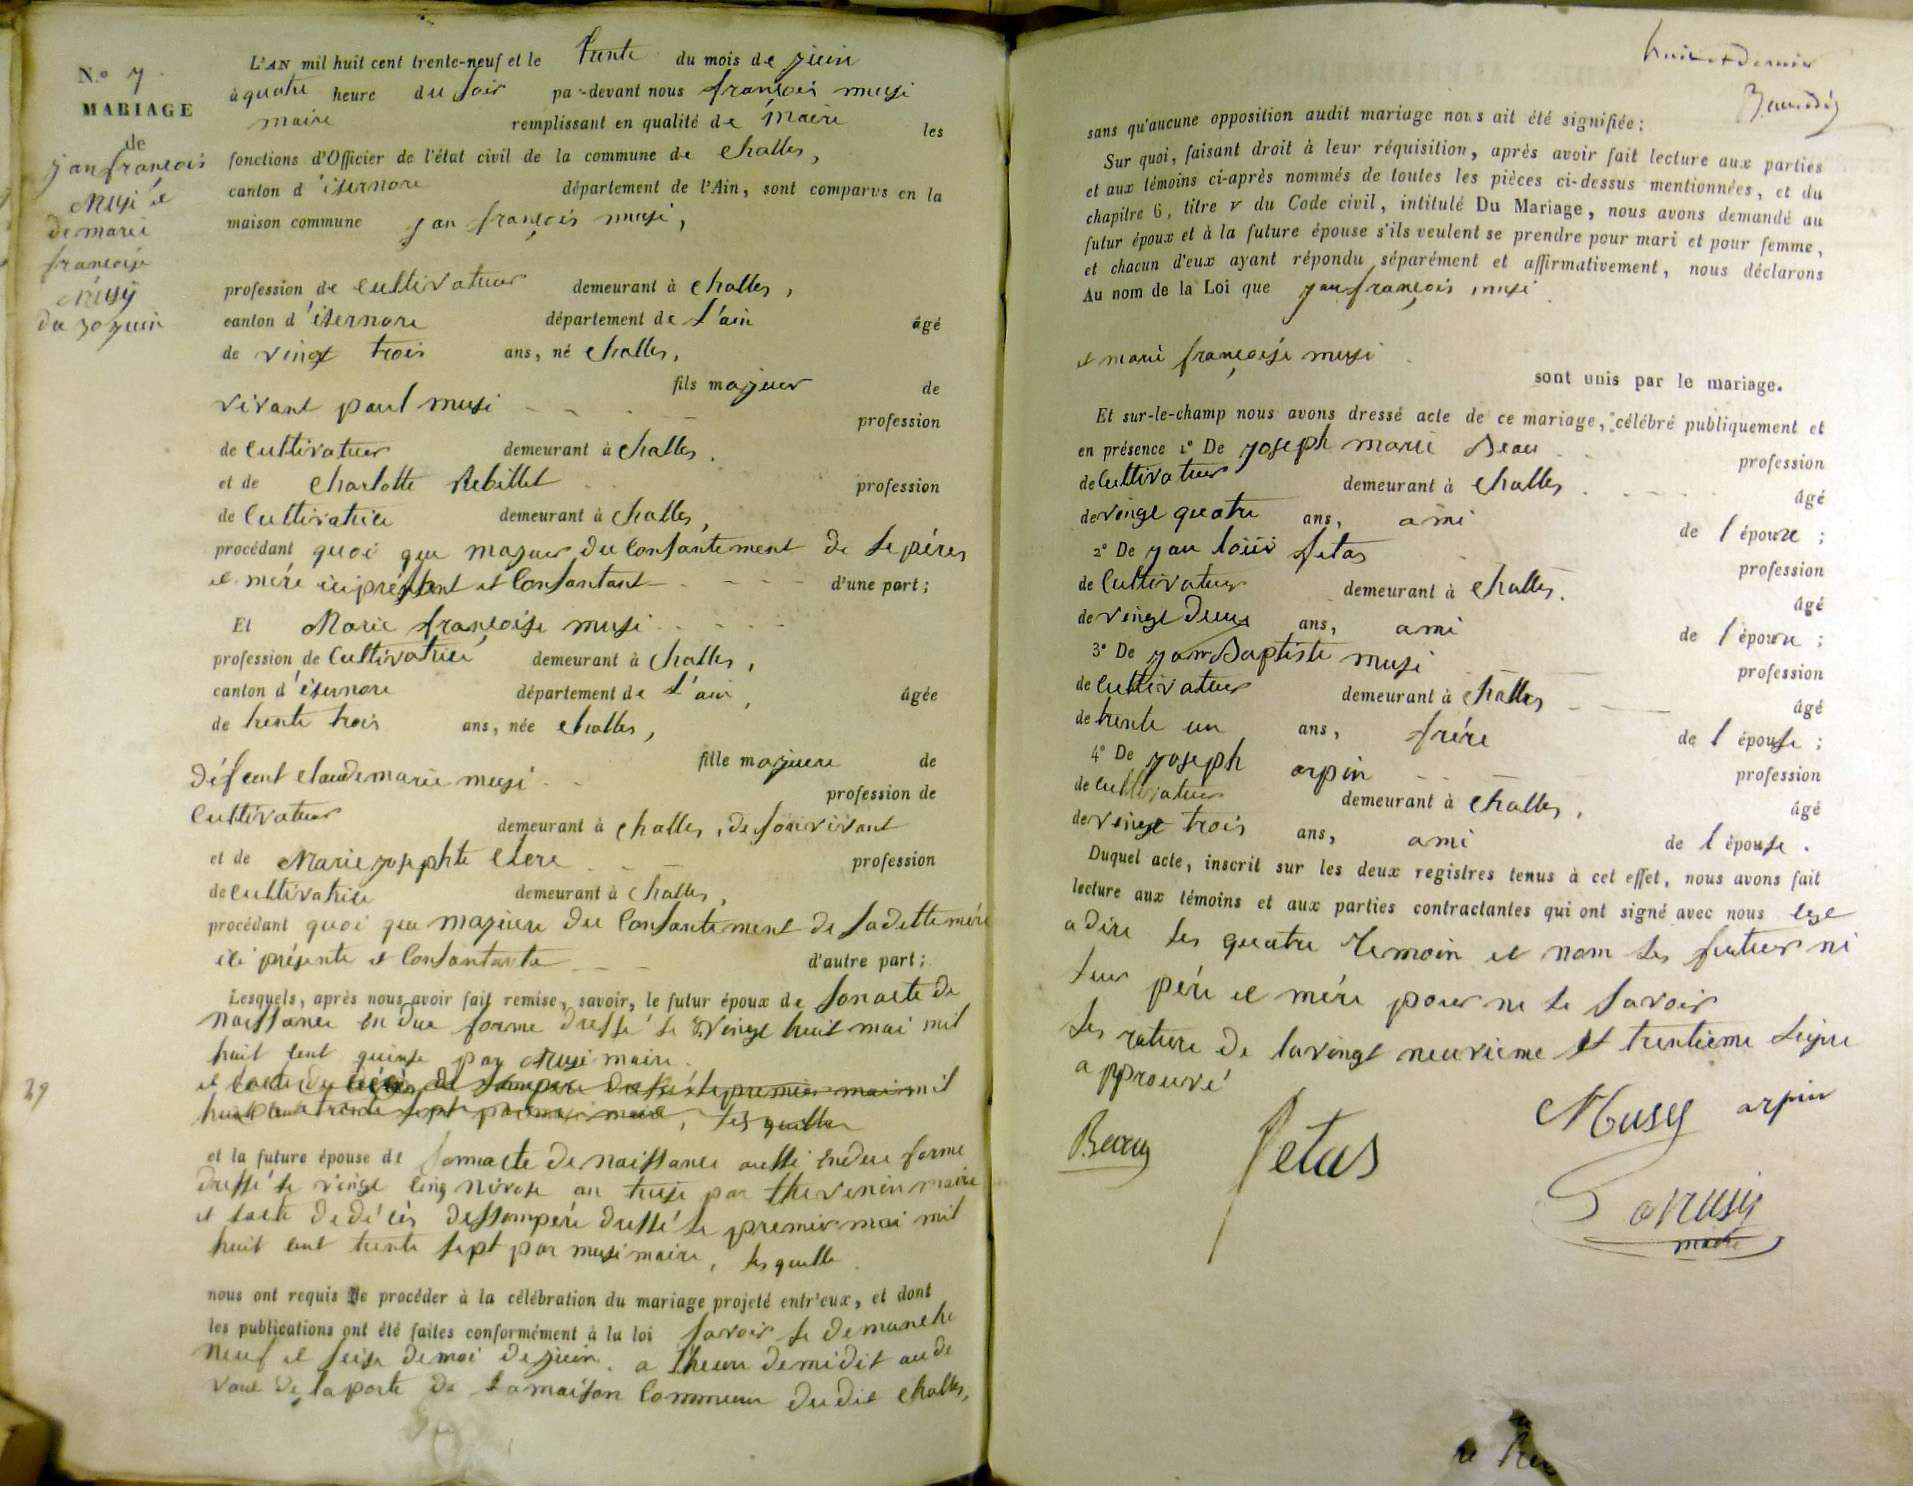 N.o 7
MARIAGE
de
jan francois
Musi et
de marie
francoise
Musy
du 30 juin
L'AN mil huit cent trente-neuf et le trente du mois de juin
à quatre heure du soir pa-devant nous françois musi
maire remplissant en qualité de maire les
fonctions d'Officier de l'état civil de la commune de challes,
canton d'isernore département de l'Ain, sont comparus en la
maison commune jan françois musi,
profession de cultivateur demeurant à challes,
canton d'isernore département de l'ain âgé
de vingt trois ans, né challes,
fils majeur de
vivant paul musi
profession
de cultivateur demeurant à challes.
et de Charlotte Rebillet profession
de Cultivatrice demeurant à challes,
procédant quoi que majeur du Consantement de se péres
et mére ici présent et Consantant d'une part;
Et Marie françoise musi
profession de Cultivatrice demeurant à challes,
canton d'isernore département de l'ain, âgée
de trente trois ans, née challes,
fille majeure de
défeunt claude marie musi
profession de
Cultivateur
demeurant à challes, de son vivant
et de Marie josephte Clerc profession
de cultivatrice demeurant à challes,
procédant quoi que majeure du Consantement de sa dette mére
ici présente et Consantante d'autre part;
Lesquels, après nous avoir fait remise, savoir, le futur époux de son acte de
naissance en due forme dressé le vingt huit mai mil
huit cent quinse par Musi maire.
et l'acte du décès de son pére dressé le premier mai mil
huit cent trente sept par musi maire, les quelle
29
et la future épouse de son acte de naissance aussi en due forme
dressé le vingt cinq nivose an treise par thevenin maire
et l'acte de décès de son pére dressé le premier mai mil
huit cent trente sept par musi maire, les quelle
nous ont requis De procéder à la célébration du mariage projeté entr'eux, et dont
les publications ont été faites conformément à la loi savoir le demanche
neuf et seise de moi de juin. a l'heure de midit au de
vant de la porte de la maison Commune du dit challes,
huit et dernier
sans qu'aucune opposition audit mariage nous ait été signifiée;
Sur quoi, faisant droit à leur réquisition, après avoir fait lecture aux parties
et aux témoins ci-après nommés de toutes les pièces ci-dessus mentionnées, et du
chapitre 6, titre v du Code civil, intitulé Du Mariage, nous avons demandé au
futur époux et à la future épouse s'ils veulent se prendre pour mari et pour femme,
et chacun d'eux ayant répondu séparément et affirmativement, nous déclarons
Au nom de la Loi que jan françois musi
et marie françoise musi
sont unis par le mariage.
Et sur-le-champ nous avons dressé acte de ce mariage, célébré publiquement et
en présence 1° De joseph marie Beau profession
de Cultivateur demeurant à challes âgé
de vingt quatre ans, ami de l'épouse;
2° De jan loui fetas profession
de Cultivateur demeurant à challes. âgé
de vingt deux ans, ami de l'épouse;
3° De jan Baptiste musi profession
de cultivateur demeurant à challes âgé
de trente un ans, frére de l'épouse;
4° De joseph arpin profession
de cultivateur demeurant à challes, âgé
de vingt trois ans, ami de l'épouse.
Duquel acte, inscrit sur les deux registres tenus à cet effet, nous avons fait
lecture aux témoins et aux parties contractantes qui ont signé avec nous
a dire les quatre temoin et nom les futur ni
leur pére et mére pour ne le savoir
les rature de la vingt neuvieme et trentieme ligne
approuvé
Musy arpin
Beau fetas
Musy
maire